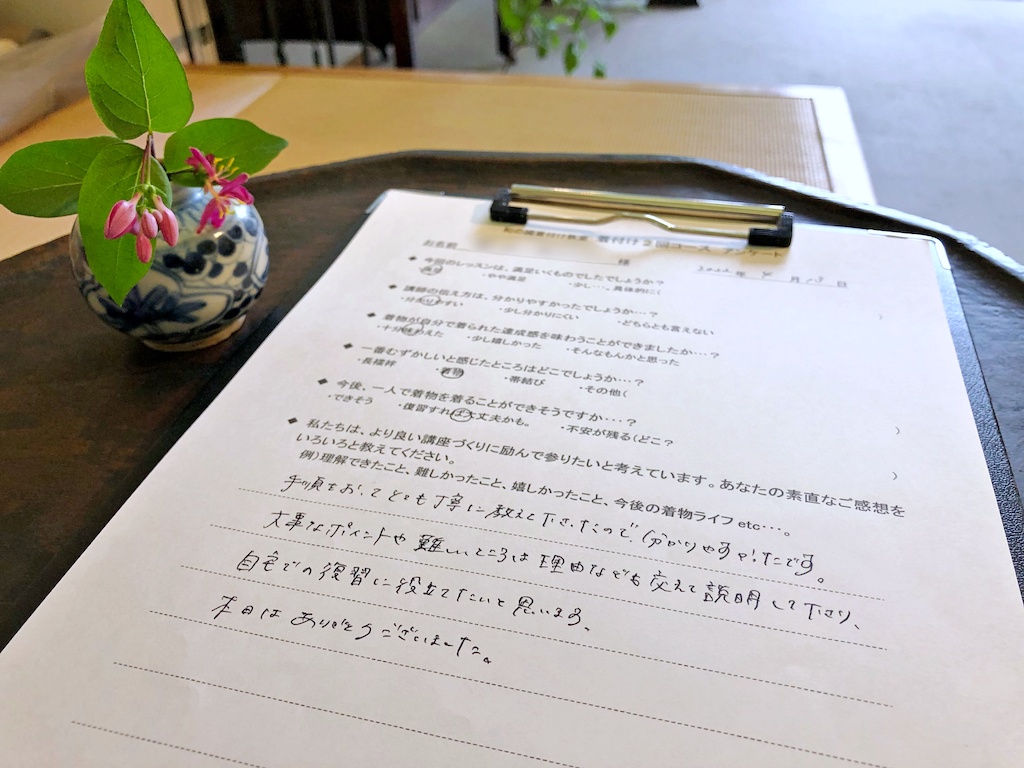 着付け2回コース アンケート
お名前 様 2022年 月 日
◆ 今回のレッスンは、満足いくものでしたでしょうか?
・満足 ・やや満足 ・少し…。具体的に( )
◆ 講師の伝え方は、分かりやすかったでしょうか…?
・分かりやすい ・少し分かりにくい ・どちらとも言えない
◆ 着物が自分で着られた達成感を味わうことができましたか…?
・十分味わえた ・少し嬉しかった ・そんなもんかと思った
◆ 一番むずかしいと感じたところはどこでしょうか…?
・長襦袢 ・着物 ・帯結び ・その他( )
◆ 今後、一人で着物を着ることができそうですか…?
・できそう ・復習すれば大丈夫かも。 ・不安が残る(どこ? )
◆ 私たちは、より良い講座づくりに励んで参りたいと考えています。あなたの素直なご感想を
いろいろと教えてください。
例)理解できたこと、難しかったこと、嬉しかったこと、今後の着物ライフetc…。
手順をおってとても丁寧に教えて下さったので分かりやすかったです。
大事なポイントや難しいところは理由なども交えて説明して下さり、
自宅での復習に役立てたいと思います。
本日はありがとうございました。